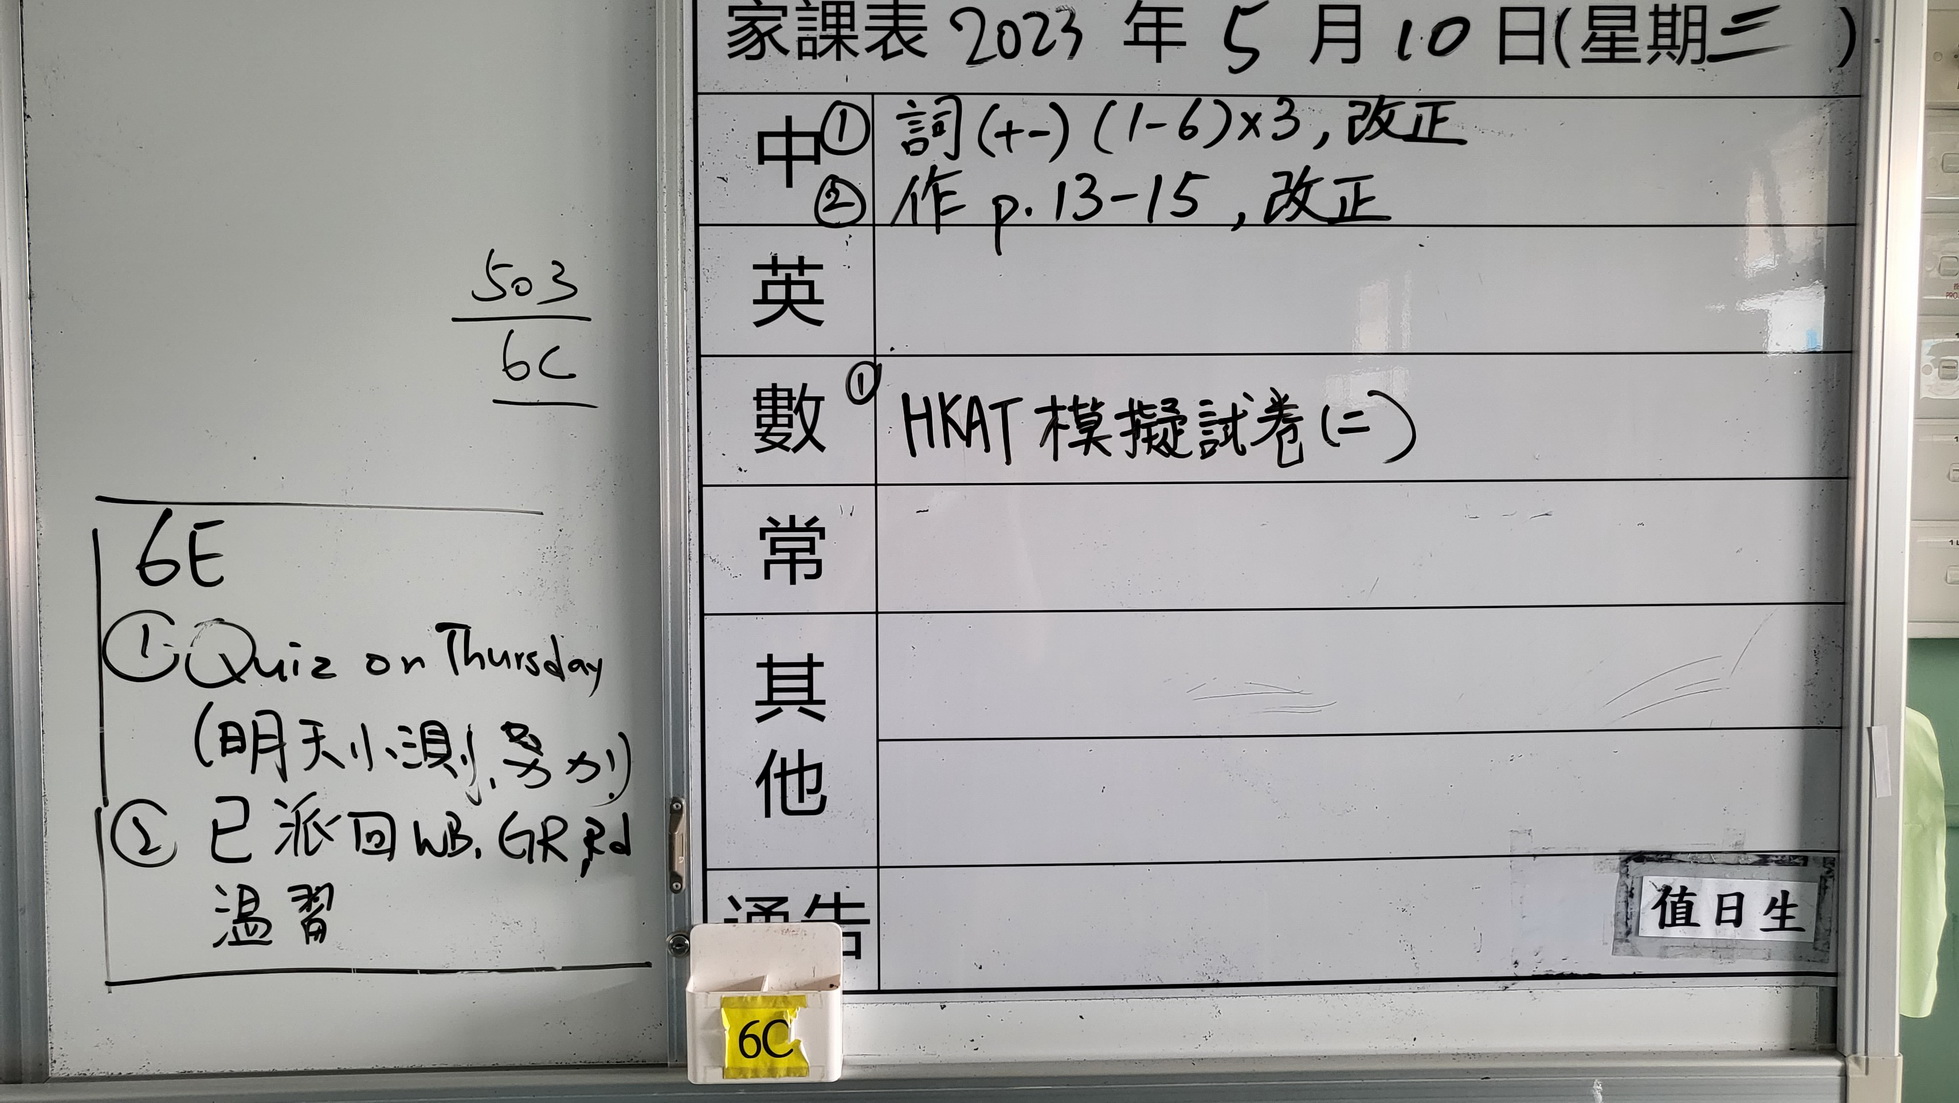 503
6C
6E
① Quiz on Thursday
(明天小測,努力!)
② 已派回 WB, GR, Rd
溫習
家課表 2023 年 5 月 10 日(星期三)
中 ① 詞(十一) (1-6)×3, 改正
② 作 p.13-15, 改正
英
數 ① HKAT 模擬試卷(二)
常
其他
通告
值日生
6C